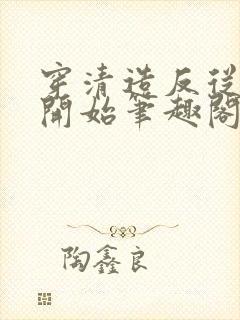 穿清造反從
開始筆趣閣
陶鑫良